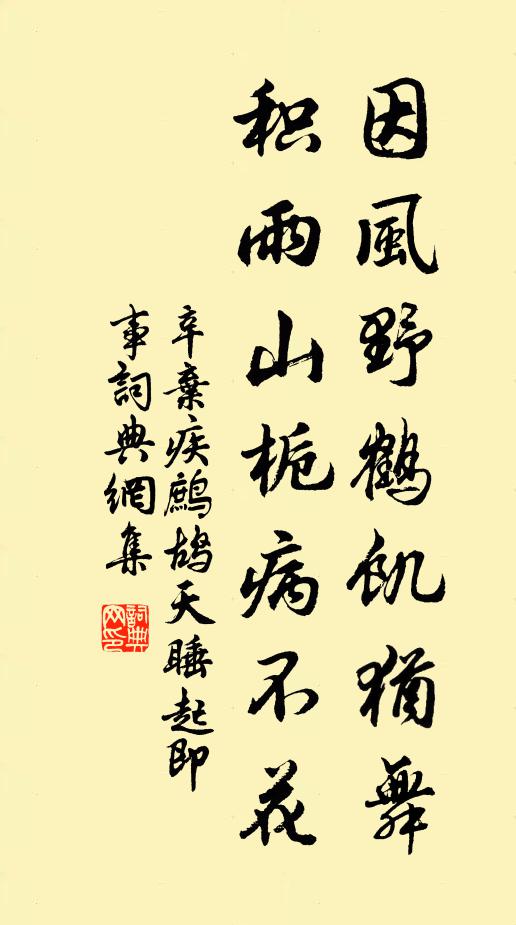 因風野鶴飢猶舞
积雨山栀病不花
辛棄疾鷓鴣天睡起即
事詞典網集
詞典網印